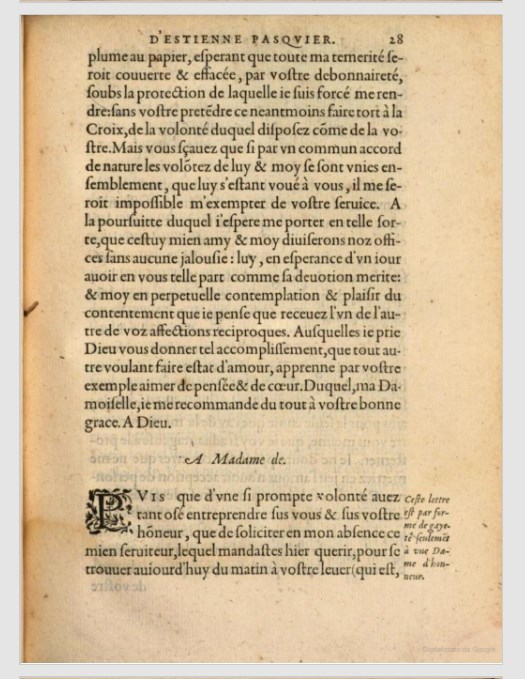 D'ESTIENNE PASQVIER. 28
plume au papier, esperant que toute ma temerité se-
roit couuerte & effacée, par vostre debonnaireté,
soubs la protection de laquelle ie suis forcé me ren-
dre: sans vostre pretẽdre ce neantmoins faire tort à la
Croix, de la volonté duquel disposez cõme de la vo-
stre. Mais vous sçauez que si par vn commun accord
de nature les volõtez de luy & moy se sont vnies en-
semblement, que luy s'estant voué à vous, il me se-
roit impossible m'exempter de vostre seruice. A
la poursuitte duquel i'espere me porter en telle sor-
te, que cestuy mien amy & moy diuiserons noz offi-
ces sans aucune jalousie: luy, en esperance d'vn iour
auoir en vous telle part comme sa deuotion merite:
& moy en perpetuelle contemplation & plaisir du
contentement que ie pense que receuez l'vn de l'au-
tre de voz affections reciproques. Ausquelles ie prie
Dieu vous donner tel accomplissement, que tout au-
tre voulant faire estat d'amour, apprenne par vostre
exemple aimer de pensée & de cœur. Duquel, ma Da-
moiselle, ie me recommande du tout à vostre bonne
grace. A Dieu.
A Madame de.
PVIS que d'vne si prompte volonté auez
tant osé entreprendre sus vous & sus vostre
hõneur, que de soliciter en mon absence ce
mien seruiteur, lequel mandastes hier querir, pour se
trouuer auiourd'huy du matin à vostre leuer (qui est,
Ceste lettre
est par for-
me de gaye-
té seulemẽt
à vne Da-
me d'hon-
neur.